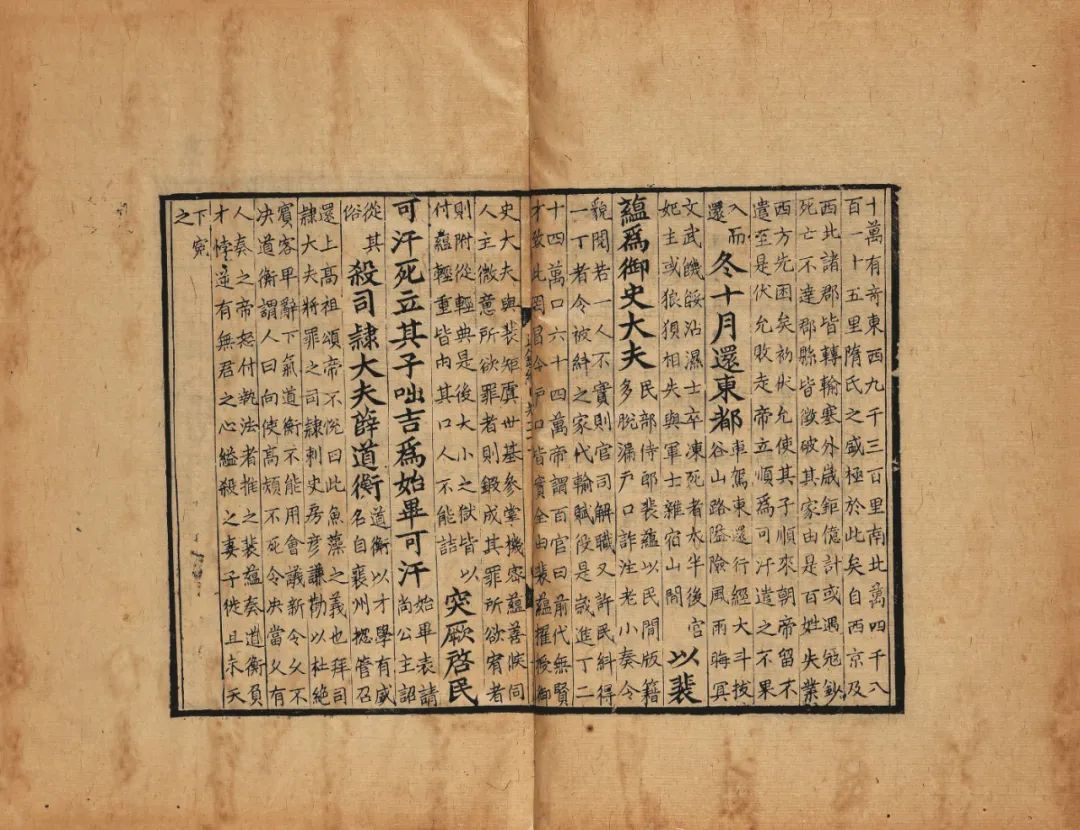 十萬有奇東西九千三百里南北萬四千八
百一十五里隋氏之盛極於此矣自西京及
西北諸郡皆轉輸塞外歲鉅億計或遇寇鈔
死亡不達郡縣皆徵破其家由是百姓失業
西方先困矣初伏允使其子順來朝帝留不
遣至是伏允敗走帝立順爲可汗遣之不果
入而
還
冬十月還東都
車駕東還行經大斗拔
谷山路隘險風雨晦冥
文武饑餒沾濕士卒凍死者太半後宮
妃主或狼狽相失與軍士雜宿山間
以裴
蘊爲御史大夫
民部侍郎裴蘊以民間版籍
多脫漏戶口詐注老小奏令
貌閱若一人不實則官司解職又許民糾得
一丁者令被糾之家代輸賦役是歲進丁二
十四萬口六十四萬帝謂百官曰前代無賢
才致此罔冒今戶口皆實全由裴蘊擢授御
史大夫與裴矩虞世基參掌機密蘊善候伺
人主微意所欲罪者則鍛成其罪所欲宥者
則附從輕典是後大小之獄皆以
付蘊輕重皆由其口人不能詰
突厥啓民
可汗死立其子咄吉爲始畢可汗
始畢表請
尚公主詔
從其
俗
殺司隸大夫薛道衡
道衡以才學有盛
名自襄州摠管召
還上高祖頌帝不悅曰此魚藻之義也拜司
隸大夫將罪之司隸刺史房彦謙勸以杜絶
賓客卑辭下氣道衡不能用會議新令久不
決道衡謂人曰向使高熲不死令決當久有
人奏之帝怒付執法者推之裴蘊奏道衡負
才悖逆有無君之心縊殺之妻子徙且末天
下寃
之